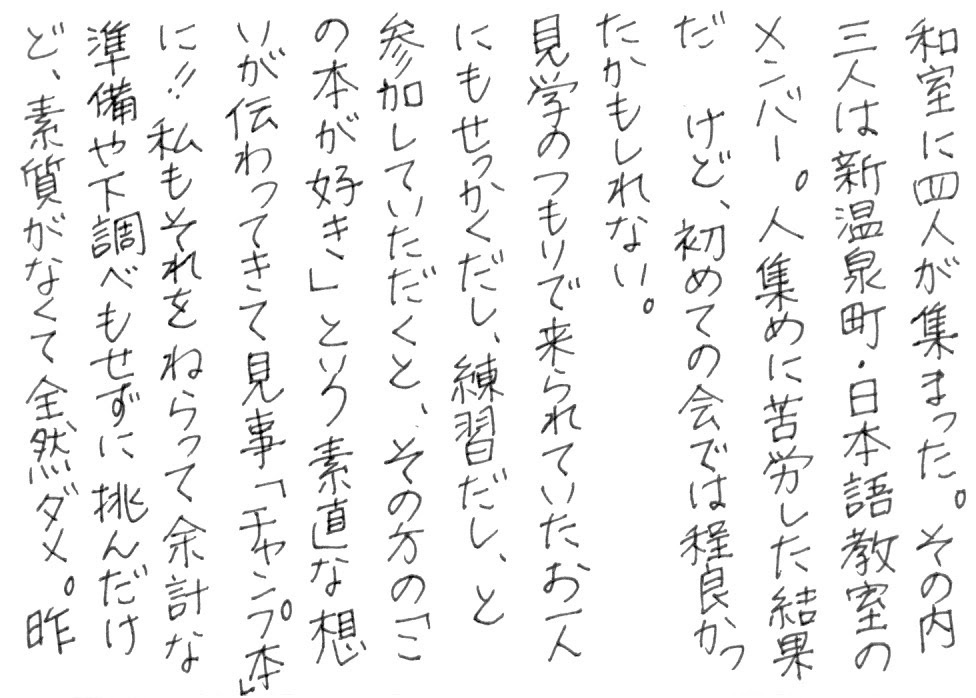 和室に四人が集まった。その内
三人は新温泉町・日本語教室の
メンバー。人集めに苦労した結果
だ けど、初めての会では程良かっ
たかもしれない。
見学のつもりで来られていたお一人
にもせっかくだし、練習だし、と
参加していただくと、その方の「こ
の本が好き」という素直な想
いが伝わってきて見事「チャンプ本」
に!!私もそれをねらって余計な
準備や下調べもせずに挑んだけ
ど、素質がなくて全然ダメ。昨